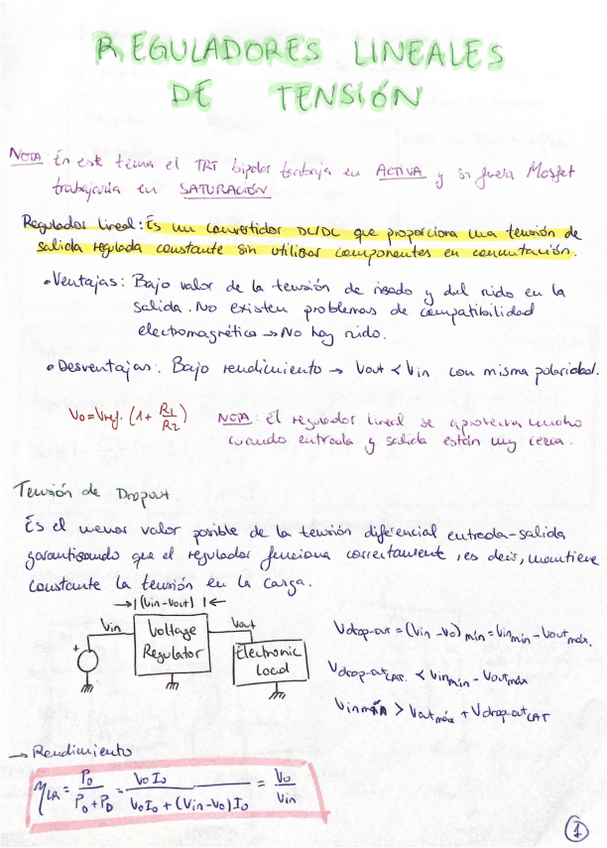 REGULADORES LINEALES
DE TENSIÓN
NOTA: En este tema el TRT bipolar trabaja en ACTIVA y si fuera Mosfet
trabajaría en SATURACIÓN
Regulador Lineal: Es un convertidor DC/DC que proporciona una tensión de
salida regulada constante sin utilizar componentes en conmutación.
• Ventajas: Bajo valor de la tensión de rizado y del ruido en la
salida. No existen problemas de compatibilidad
electromagnética → No hay ruido.
• Desventajas: Bajo rendimiento → Vout < Vin con misma polaridad.
Vo = Vref. (1 + R1/R2)
NOTA: El regulador lineal se aprovecha mucho
cuando entrada y salida están muy cerca.
Tensión de Dropout
Es el menor valor posible de la tensión diferencial entrada-salida
garantizando que el regulador funciona correctamente, es decir, mantiene
constante la tensión en la carga.
→| (Vin-Vout) |←
Vin
Voltage
Regulator
Vout
Electronic
Load
+
Vdrop-out = (Vin - Vo) mín = Vin mín - Vout máx.
Vdrop-out CAT. < Vin mín - Vout máx
Vin > Vout máx + Vdrop-out CAT
→ Rendimiento
η LR = Po / (Po + PD) = Vo Io / (Vo Io + (Vin - Vo) Io) = Vo / Vin
1